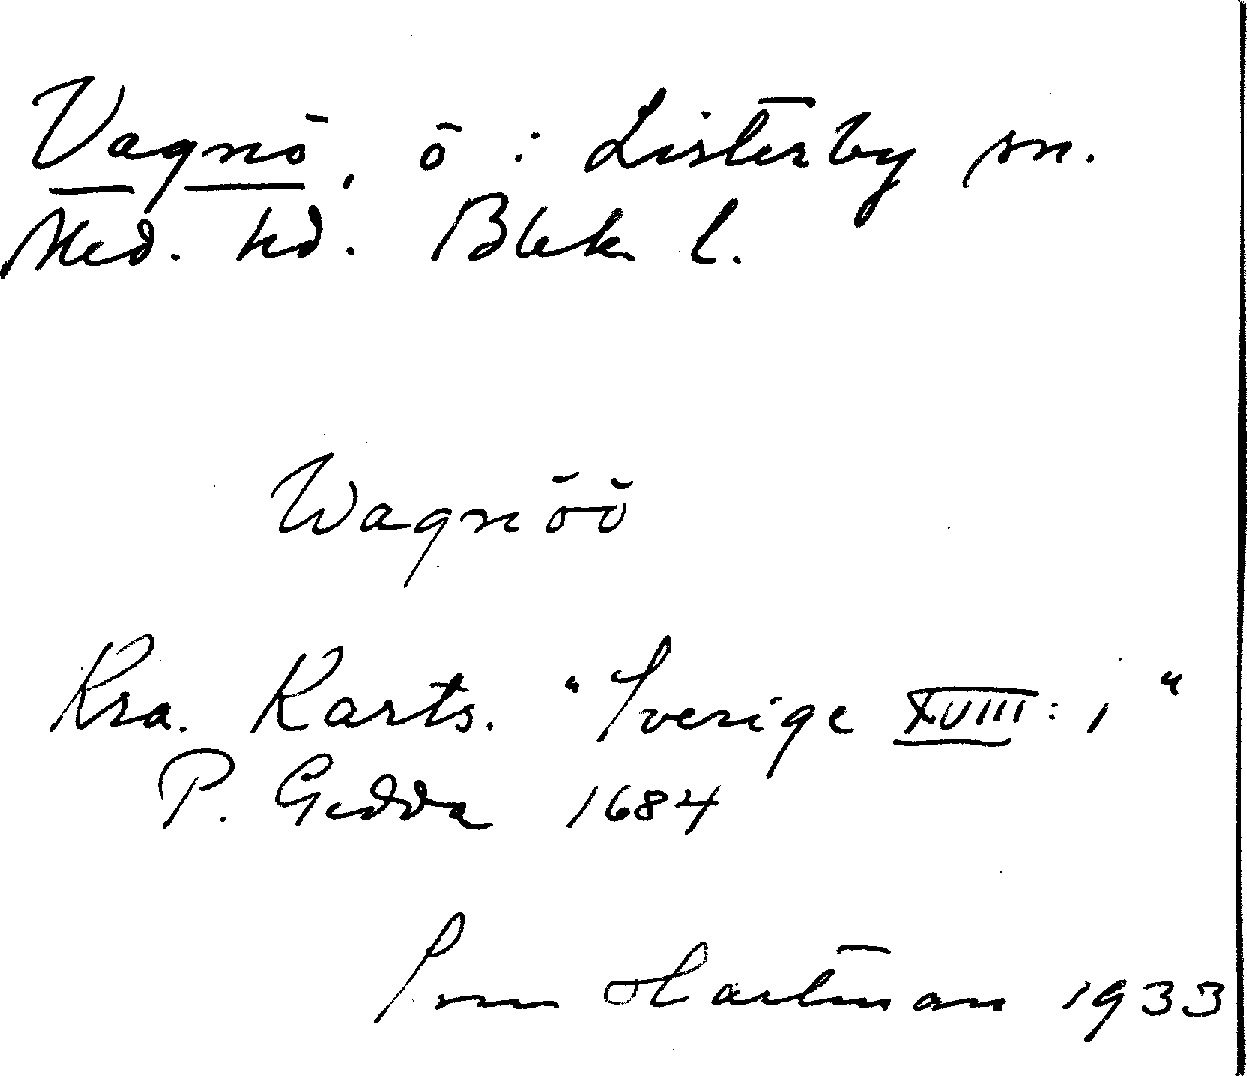 Vagnö, ö : Listerby sn.
Med. hd. Blek l.
Wagnöö
Kra. Karts. "Sverige XVIII : 1"
P. Gedda 1684
Hartman 1933